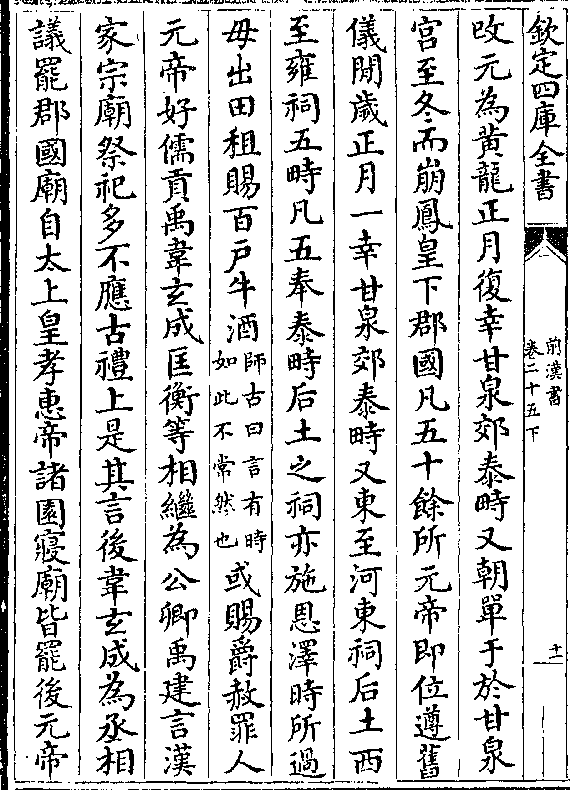 欽定四庫全書
前漢書
卷二十五下
十一
改元為黃龍正月復幸甘泉郊泰畤又朝單于於甘泉
宮至冬而崩鳳皇下郡國凡五十餘所元帝即位遵舊
儀間歲正月一幸甘泉郊泰畤又東至河東祠后土西
至雍祠五畤凡五奉泰畤后土之祠亦施恩澤時所過
毋出田租賜百戶牛酒師古曰言有時如此不常然也或賜爵赦罪人
元帝好儒貢禹韋玄成匡衡等相繼為公卿禹建言漢
家宗廟祭祀多不應古禮上是其言後韋玄成為丞相
議罷郡國廟自太上皇孝惠帝諸園寢廟皆罷後元帝